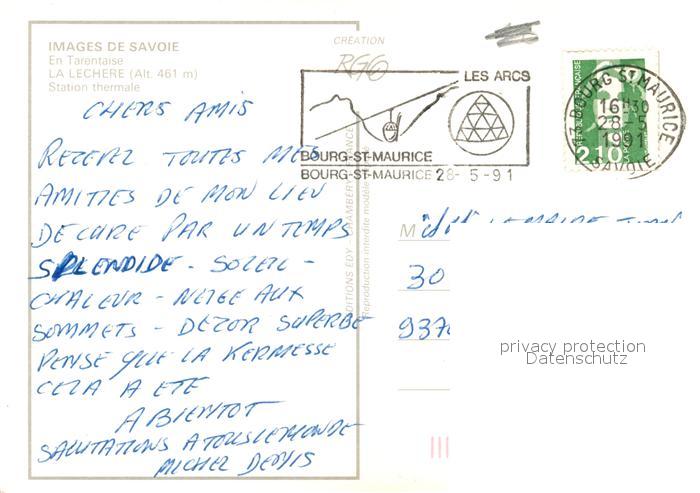 IMAGES DE SAVOIE
En Tarentaise
LA LECHERE (Alt. 461 m)
Station thermale
CHERS AMIS
RECEVEZ TOUTES MES
AMITIES DE MON LIEU
DE CURE PAR UN TEMPS
SPLENDIDE - SOLEIL -
CHALEUR - NEIGE AUX
SOMMETS - DECOR SUPERBE
PENSE QUE LA KERMESSE
CELA A ETE
A BIENTOT
SALUTATIONS A TOUS LE MONDE
MICHEL
CRÉATION
LES ARCS
BOURG-ST-MAURICE
BOURG-ST-MAURICE 28-5-91
73 BOURG ST MAURICE
16H30
28-5
1991
SAVOIE
2,10
EDITIONS EDY - CHAMBERY - FRANCE
Reproduction interdite modèle
M
30
937
privacy protection
Datenschutz